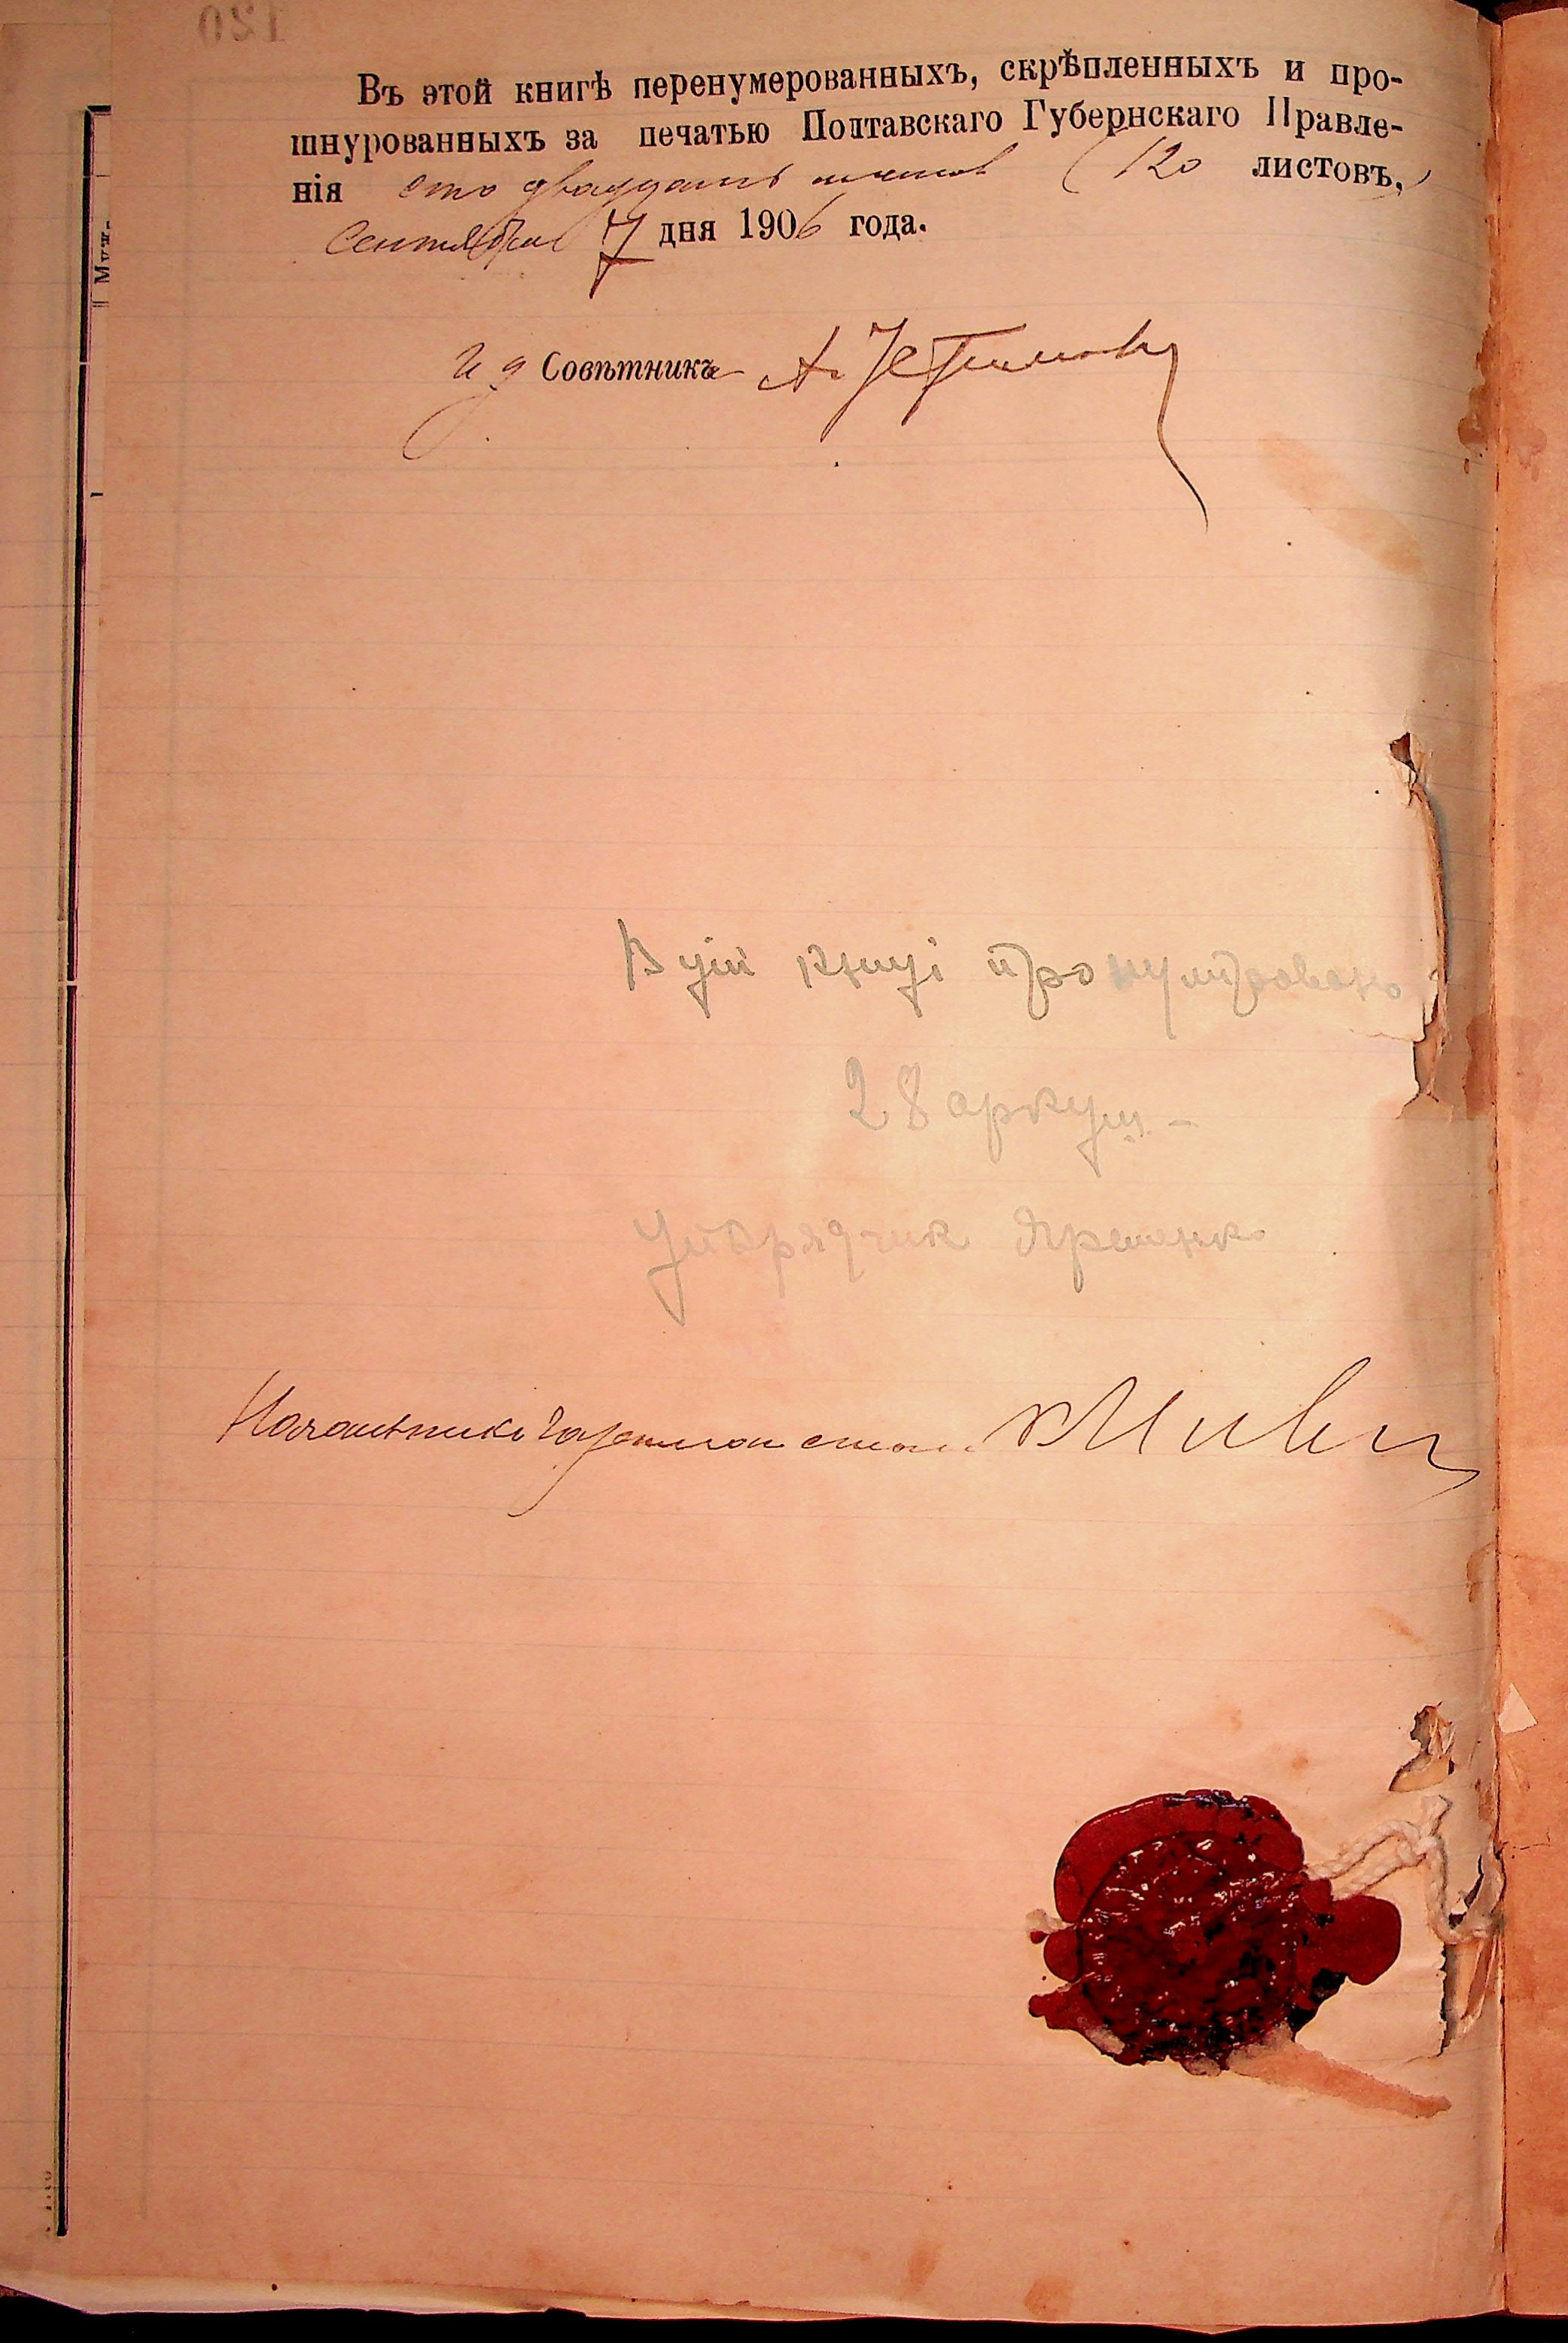 Въ этой книгѣ перенумерованныхъ, скрѣпленныхъ и про-
шнурованныхъ за печатью Полтавскаго Губернскаго Правле-
нія сто двадцать листов (120 листовъ,)
Сентября 7 дня 1906 года.
И д Совѣтника А.
В цій книзі пронумеровано
28 аркуш.-
Упорядчик Яременко
Начальникъ Газетнаго стола
Муж-